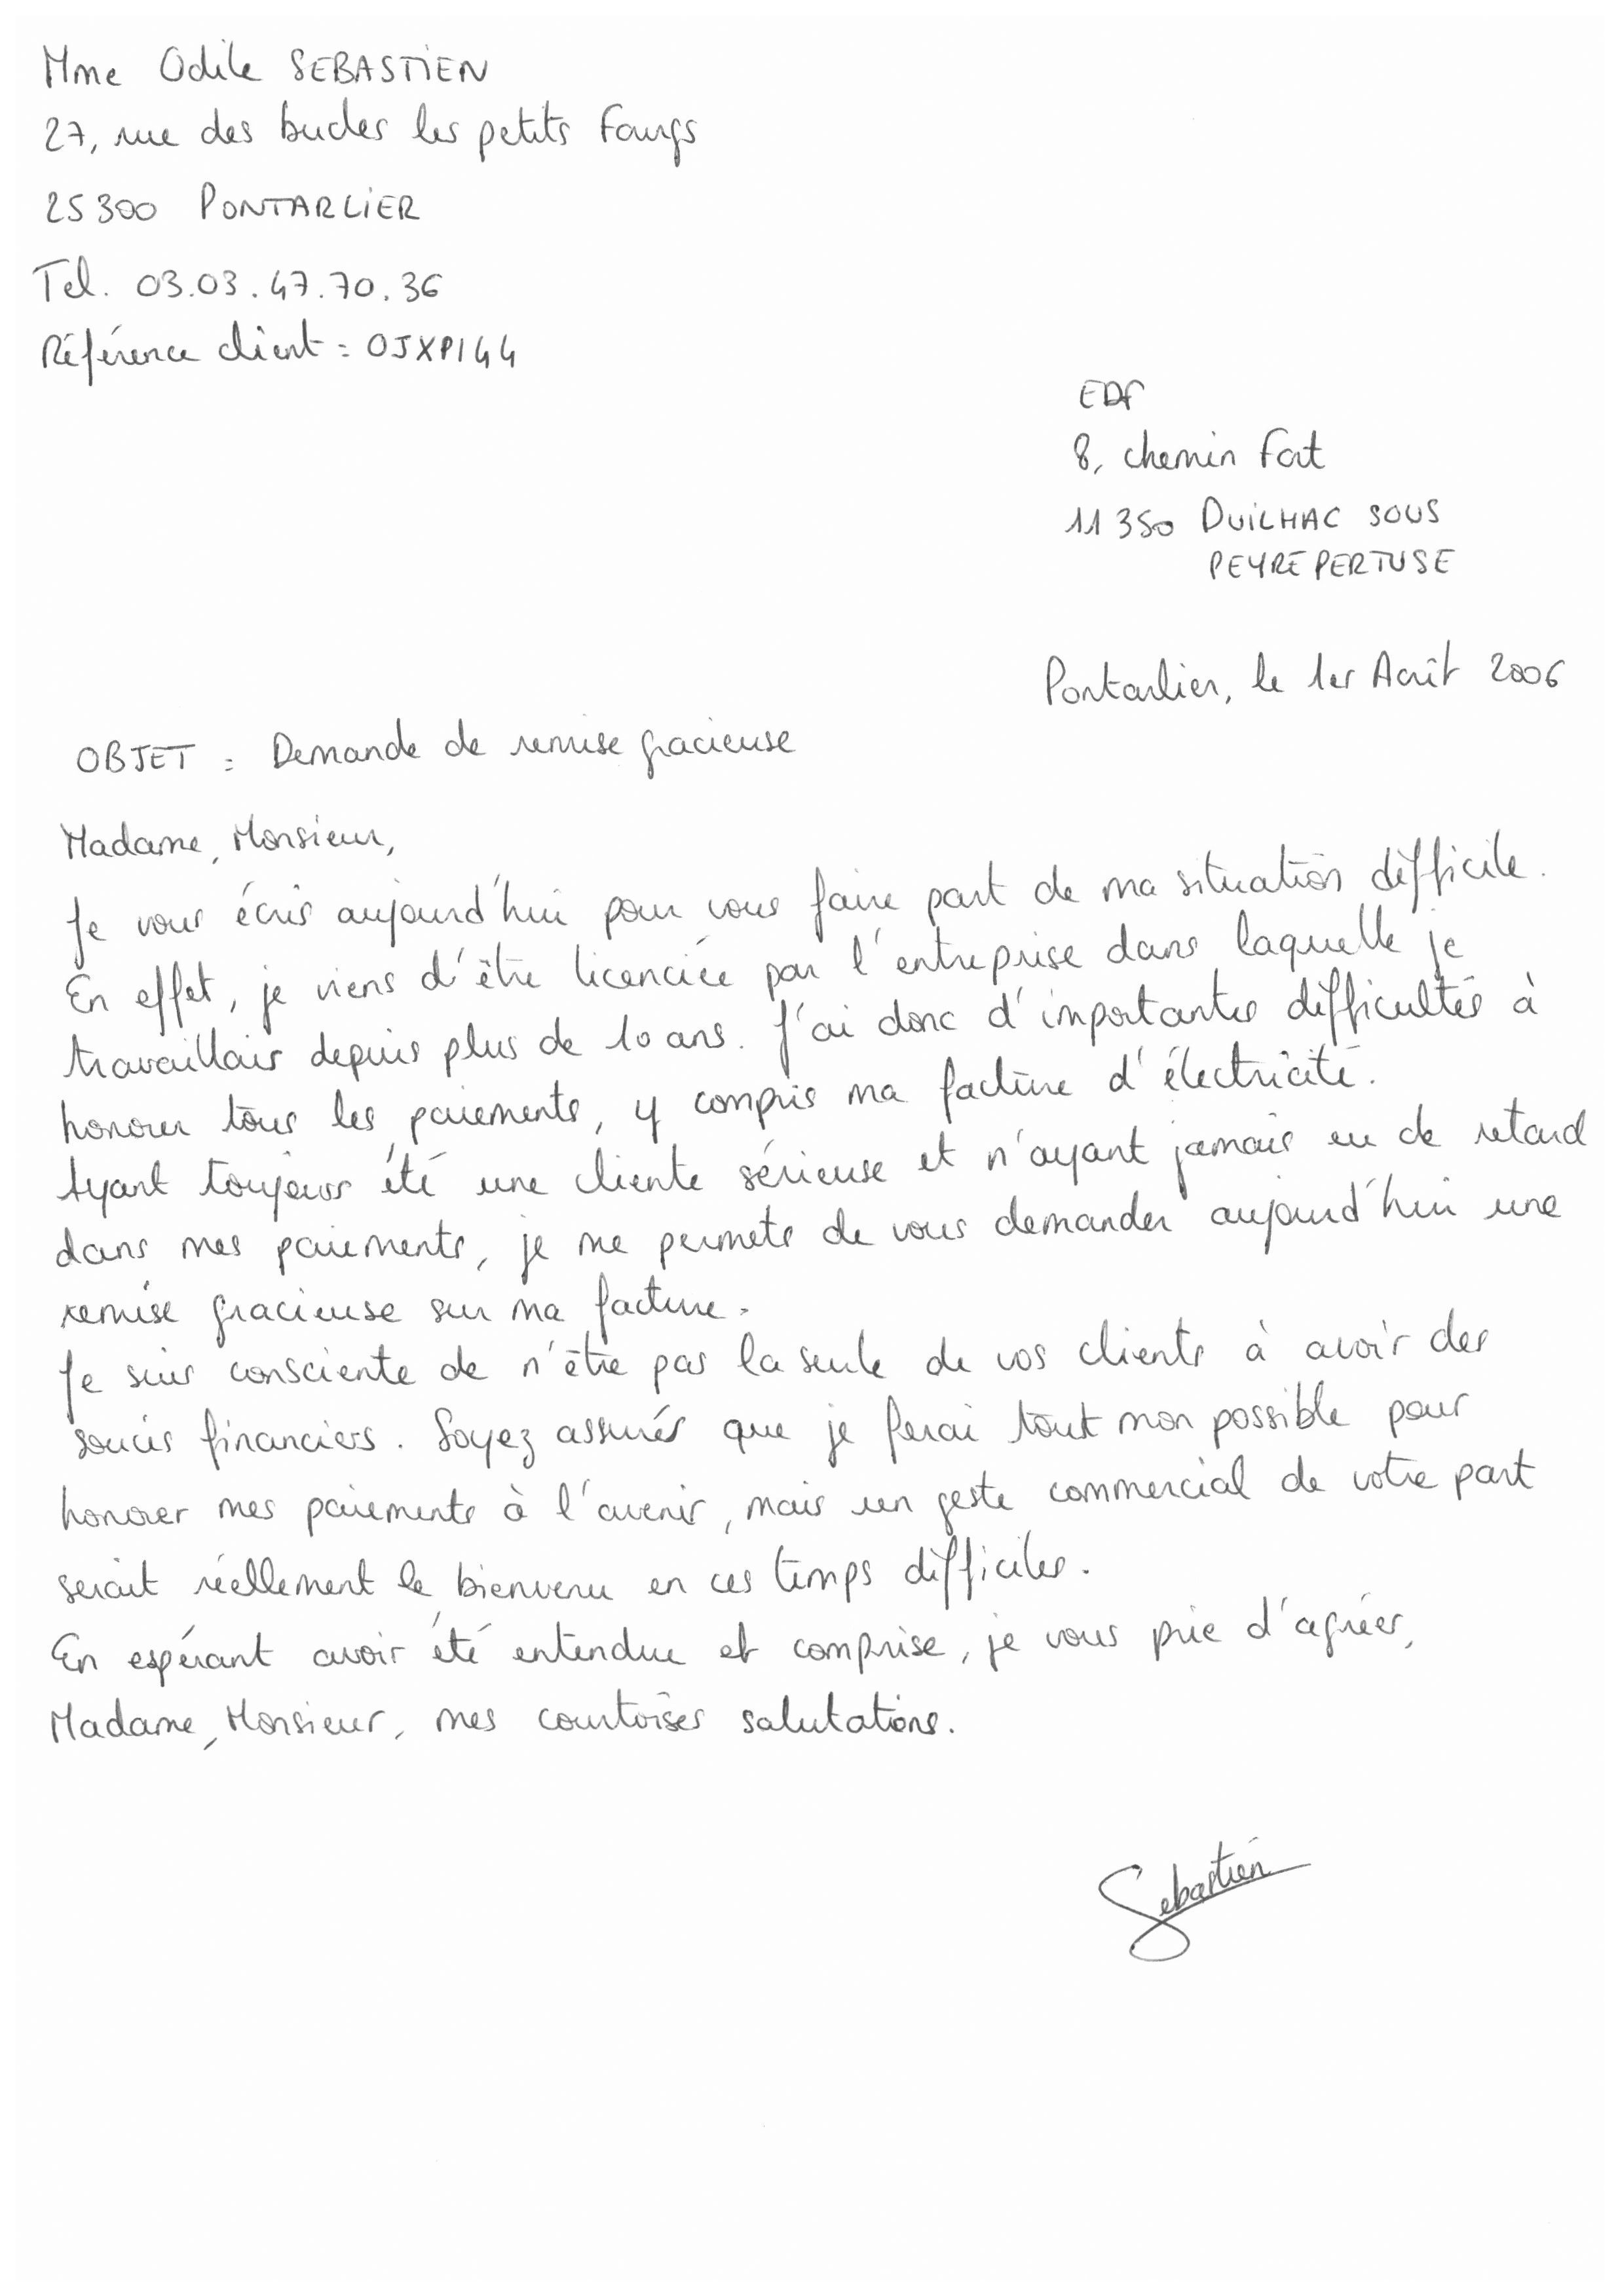 Mme Odile SEBASTIEN
27, rue des bucles les petits Fourgs
25300 PONTARLIER
Tel. 03.03.47.70.36
Référence client : OJXPI44
EDF
8, chemin Fort
11350 DUILHAC SOUS
PEYREPERTUSE
Pontarlier, le 1er Août 2006
OBJET : Demande de remise gracieuse
Madame, Monsieur,
Je vous écris aujourd'hui pour vous faire part de ma situation difficile.
En effet, je viens d'être licenciée par l'entreprise dans laquelle je
travaillais depuis plus de 10 ans. J'ai donc d'importantes difficultés à
honorer tous les paiements, y compris ma facture d'électricité.
Ayant toujours été une cliente sérieuse et n'ayant jamais eu de retard
dans mes paiements, je me permets de vous demander aujourd'hui une
remise gracieuse sur ma facture.
Je suis consciente de n'être pas la seule de vos clients à avoir des
soucis financiers. Soyez assurés que je ferai tout mon possible pour
honorer mes paiements à l'avenir, mais un geste commercial de votre part
serait réellement le bienvenu en ces temps difficiles.
En espérant avoir été entendue et comprise, je vous prie d'agréer,
Madame, Monsieur, mes courtoises salutations.
Sebastien